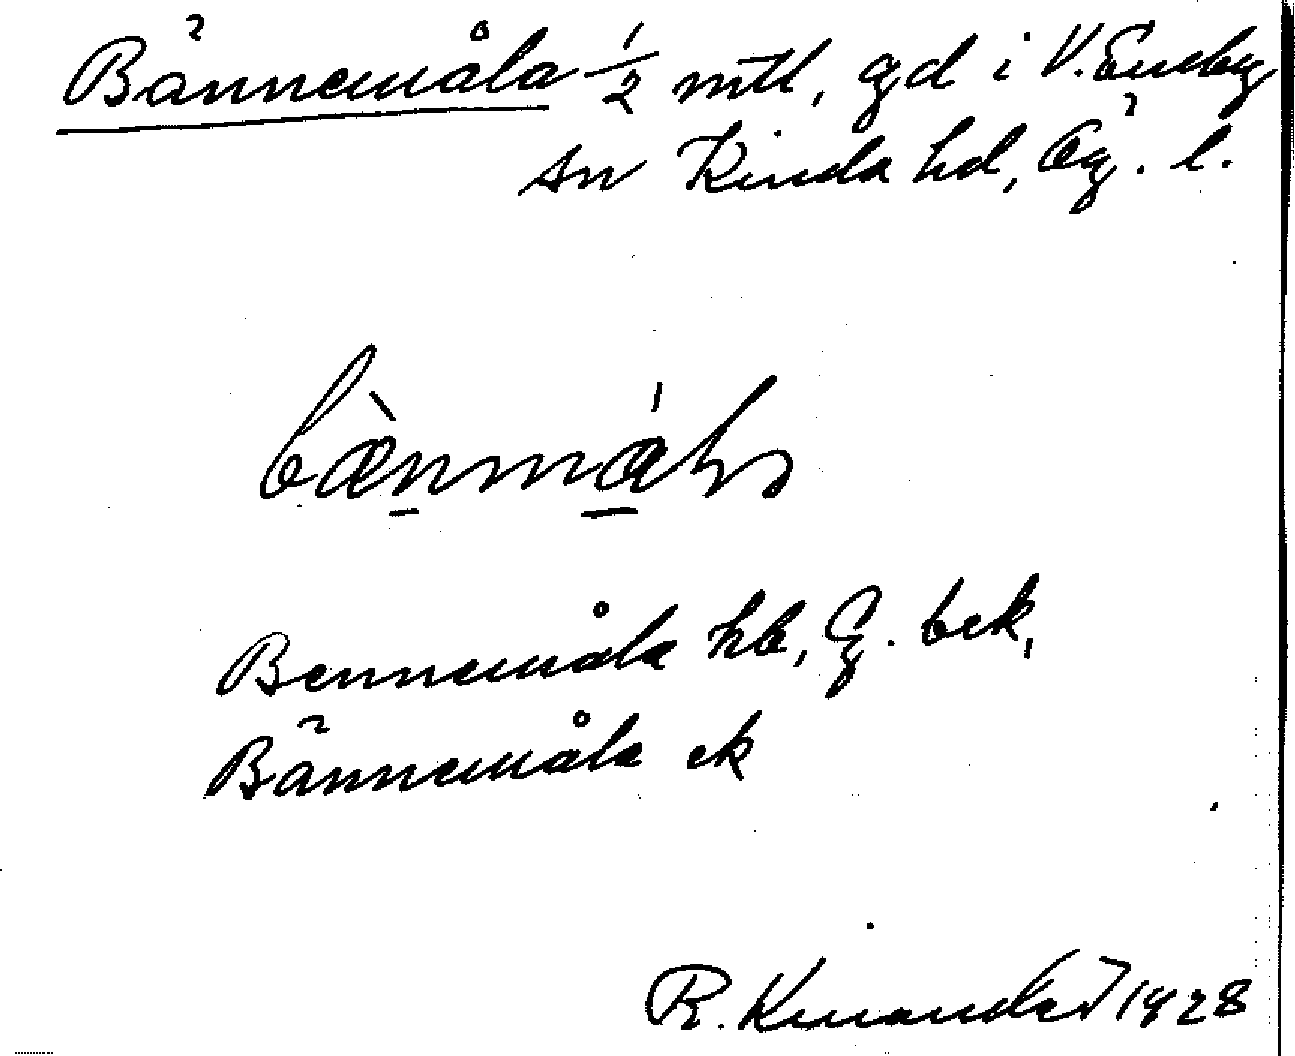 Bännemåla 1/2 mtl, gd i V. Eneby
sn Kinda hd, Ög. l.
bæ̀nmála
Bennemåla hb, G. bek,
Bännemåla ek
R. Kinander 1928